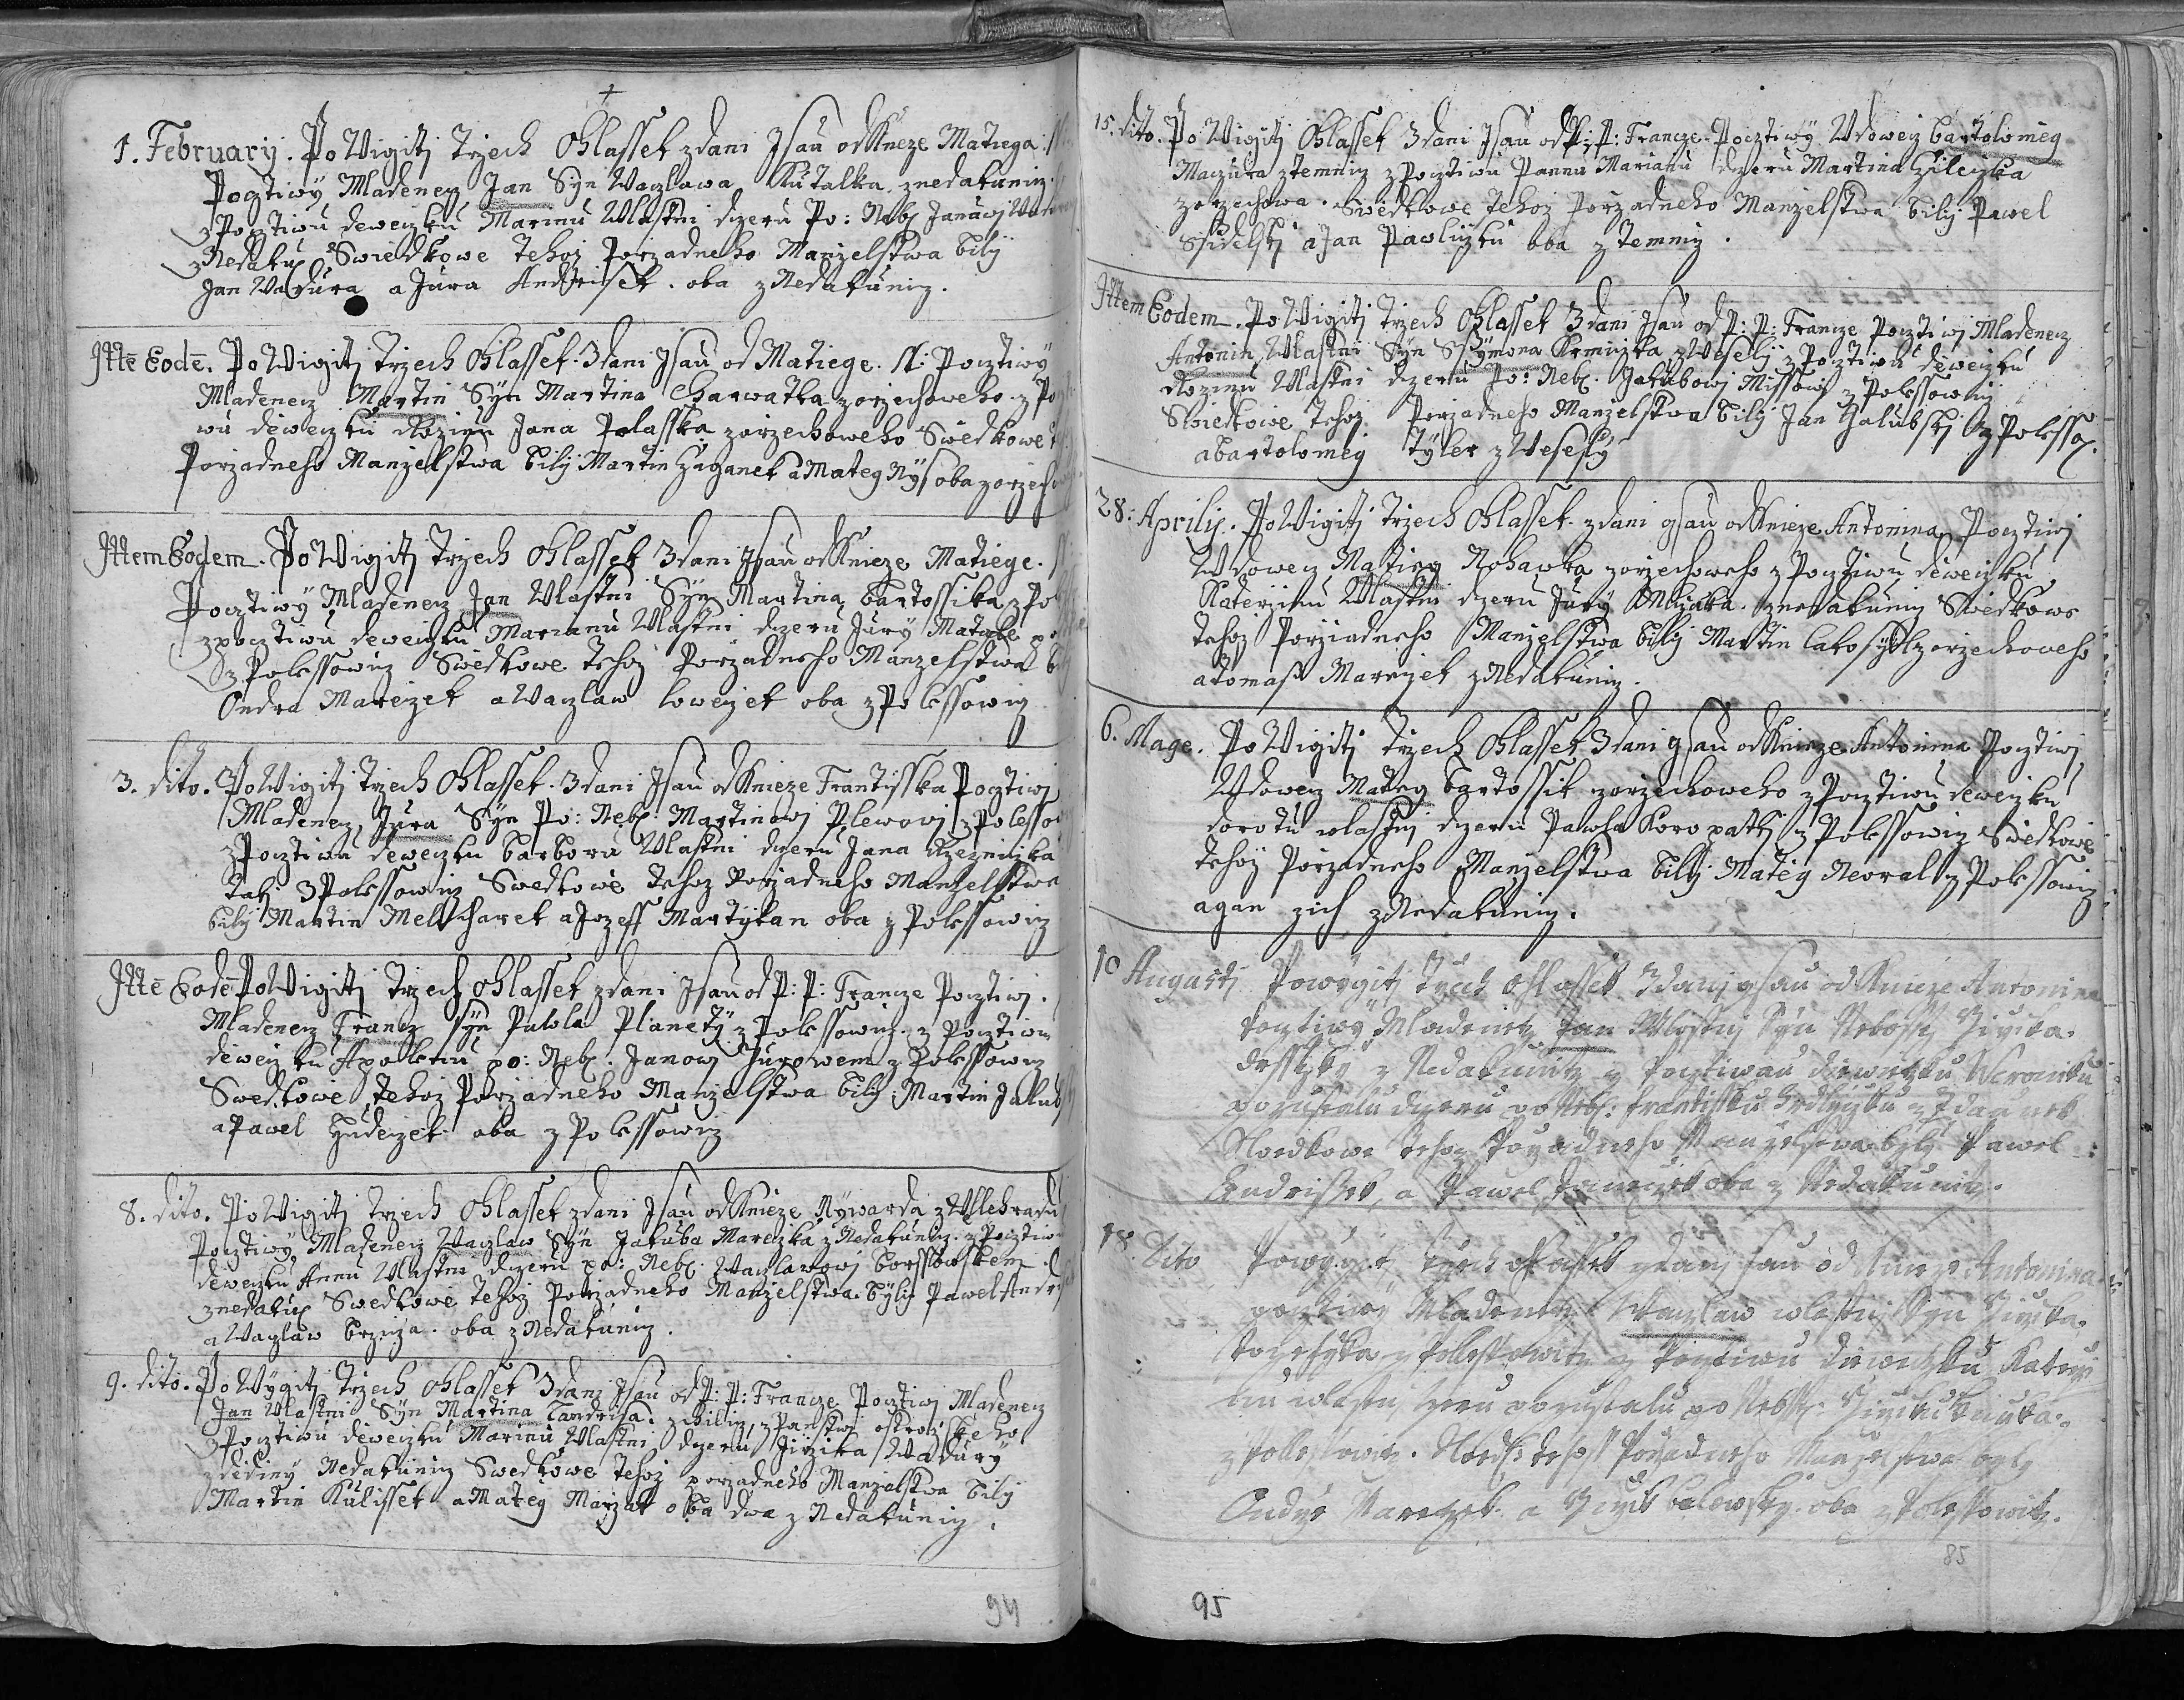 1. February. Po Vigitj trzech Ohlassek zdani Jsau od Kneze Matiega:
Pocztiwÿ Mladenecz Jan Syn Waczlawa Kutalka z nedakunicz.
z Pocztiwu deweczku Marinu Wlastni dczeru Po: Neb: Janaei
z Nedaku: Swiedkowe tehoz Porzadneho Manzelstwa bilÿ
Jan Wadura a Jura Andrisek. oba z Nedakunicz.
Ittē Eodē. Po Vigitj Trzech Ohlassek. Zdani Jsau od Matiege. N: Pocztiwÿ
Mladenecz Martin Syn Martina Charwatka z orzechoweho z Po
wu deweczku Rozinu Jana Polasska z orzechoweho Swedkowe
Porzadneho Manzelstwa bilÿ Martin Zaganek a Mateg Rÿs oba z orzecho
Ittem Eodem. Po Vigitj Trzech Ohlassek Zdani Jsau od Knieze Matiege.
Pocztiwÿ Mladenecz Jan Wlastni Syn Martina bartossika z Po
z pocztiwu deweczku Marianu Wlastni dczeru Jury
z Polessowicz Swedkowe tehoz Porzadneho Manzelstwa
Ondra Mareczek a Waczlaw loweczek oba z Polessowicz
3. dito. Po Vigitj trzech Ohlassek. Zdani Jsau od Knieze Frantisska Pocztiwj
Mladenecz Jura Syn Po: Neb: Martinowj Plewowj z Polesso
z Pocztiwu deweczku barboru Wlastni dczeru Jana Rzezniczka
takj z Polessowicz Swedkowe tehoz Porzadneho Manzelstwa
bilÿ Martin Melcharek a Jozeff Martÿkan oba z Polessowicz
Ittē Eodē Po Vigitj Trzech Ohlassek zdani Jsau od P: P: Francze Pocztiwj.
Mladenecz Francz Syn Pawla Planetÿ z Polessowicz. z pocztiwu
deweczku Apolenu po: Neb: Janowj z Polessowicz
Swedkowe tehoz Porzadneho Manzelstwa bilÿ Martin
a Pawel Hudeczek oba z Polessowicz
8. dito. Po Vigitj trzech Ohlassek zdani Jsau od Knieze Rÿwarda z Wllehradu
Pocztiwÿ Mladenecz Waczlaw Syn Jakuba Mareczka z Nedakunicz. z Pocztiwu
deweczku Annu Wlastni dczeru po: Neb: Waczlawowj borssowskem
z nedaku: Swedkowe tehoz Porzadneho Manzelstwa. bÿlÿ Pawel
a Waczlaw brzeza. oba z Nedakunicz.
9. dito. Po Vÿgitj Trzech Ohlassek Zdanj Jsau od P: P: Francze Pocztiwj Mladenecz
Jan Wlastni Syn Martina z Panstwj ostrozskeho
z Pocztiwu deweczku Marinu Wlastni dczeru Jirzika Wadurÿ
z dediny Nedakunicz Swedkowe tehoz porzadneho Manzelstwa bilÿ
Martin Kulissek a Mateg Marzak oba dwa z Nedakunicz.
94
15. dito. Po Vigitj Ohlassek Zdani Jsau od P: P: Francze. Pocztiwÿ Wdowecz bartolomeg
Maczura z temnicz z Pocztiwu Pannu Marianu dczeru Martina
z orzechowa. Swedkowe tehoz Porzadneho Manzelstwa bilÿ Pawel
a Jan Pawliczku oba z temnicz.
Ittem Eodem. Po Vigitj Trzech Ohlassek Zdani Jsau od P: P: Francze Pocztiwj Mladenecz
Antonin Wlastni Syn Ssÿmona Krmiczka z Weselÿ z Pocztiwu deweczku
Rozinu Wlastni dczeru Po: Neb: Jakubowj Missowj z Polessowicz
Swiedkowe tehoz Porzadneho Manzelstwa bilÿ Jan Halubskj z Polesso:
a bartolomeg Tÿler z Weselÿ
28: Aprilis. Po Vigitj trzech Ohlassek. zdani gsau od Knieze Antonina Pocztiwj
Wdowecz Matieg z orzechoweho z Pocztiwu deweczku
Katerzinu Wlastni dczeru Jurÿ z nedakunicz Swedkowe
tehoz Porziadneho Manzelstwa bilÿ Martin z orzechoweho
a tomass Mareczek z Nedakunicz.
6. Mage. Po Vigitj trzech Ohlassek Zdani gsau od Knieze Antonina Pocztiwj
Wdowecz Mateg bartossik z orzechoweho z Pocztiwu deweczku
dorotu wlastnj dczeru Pawla Koropatkj z Polessowicz Swedkowe
tehoz Porzadneho Manzelstwa bilÿ. Mateg Neoral z Polessowicz
a gan zich z Nedakunicz.
10 Augusti Powÿgitj Trzech Ohlassek Zdanj gsau od Knieze Antonina
Pocztiwÿ Mladenetz Jan Wlastnj Syn Jirzika.
z Nedakunitz z Pocztiwau diewecztku Weroniku
pozustalu dczeru po Neb: frantissku
Swedkowe tehoz Porzadneho Manzelstwa bylj Pawel
Andrissek, a Pawel oba z Nedakunitz.
18. Dito Powÿgitj Trzech Ohlassek zdanj sau od Knieze Antonina
pocztiwÿ Mladenetz Waczlaw wlastnj Syn Jirzika.
z Pollessowitz z Poctiwu diewecztku Katerzi
nu wlastnj dczeru pozustalu po Nebss: Jirziku
z Pollessowitz. Swedk: tehoz Porzadneho Manzelstwa bylj
Ondrÿ Mareczek a Jirzik oba z Polessowitz.
85
95